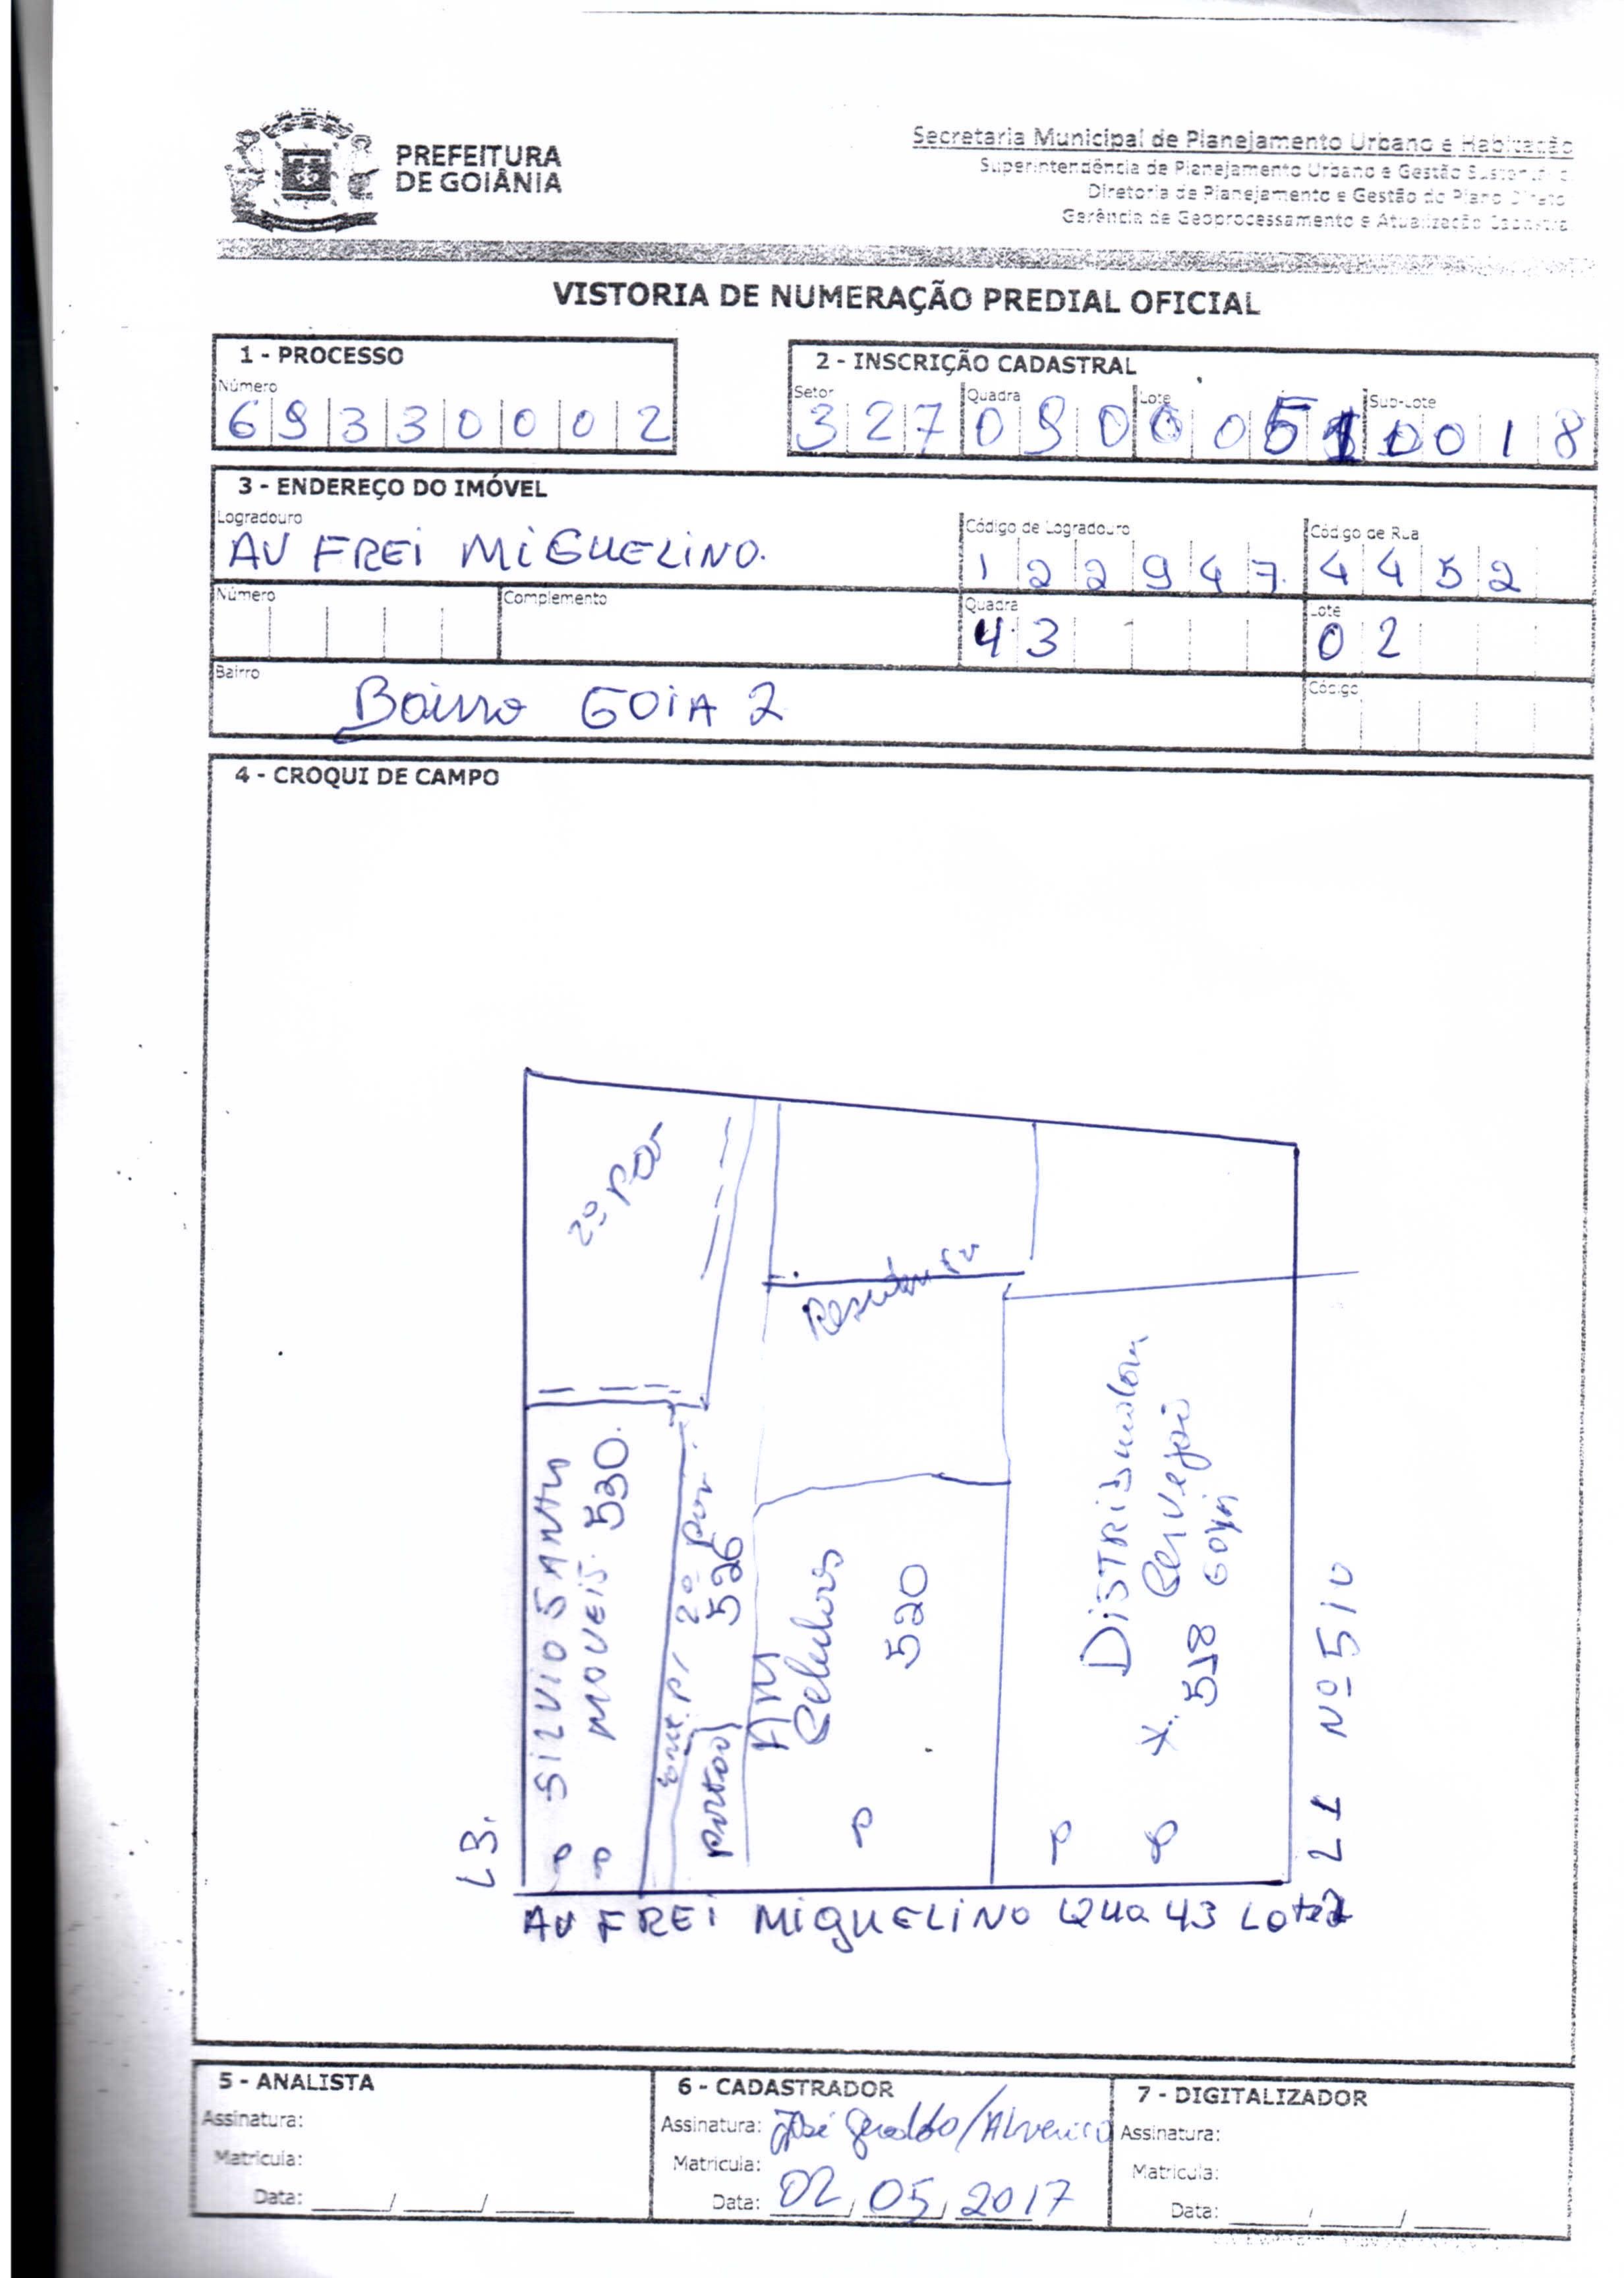 PREFEITURA
DE GOIÂNIA
Secretaria Municipal de Planejamento Urbano e Habitação
Superintendência de Planejamento Urbano e Gestão
Diretoria de Planejamento e Gestão do Plano Diretor
Gerência de Geoprocessamento e Atualização Cadastral
VISTORIA DE NUMERAÇÃO PREDIAL OFICIAL
1 - PROCESSO
Número
6 9 3 3 0 0 0 2
2 - INSCRIÇÃO CADASTRAL
Setor Quadra Lote Sub-Lote
3 2 7 0 9 0 0 0 5 1 0 0 1 8
3 - ENDEREÇO DO IMÓVEL
Logradouro Código de Logradouro Código de Rua
AV FREI MIGUELINO. 1 2 2 9 4 7 4 4 5 2
Número Complemento Quadra Lote
4 3 0 2
Bairro Código
Bairro GOIA 2
4 - CROQUI DE CAMPO
2º Pav
Residencia
SILVIO SANTOS
MOVEIS 530.
Ent. P/ 2º Pav.
portão 526
Celulares
520
DISTRIBUIDORA
Cervejas
518 GOIÁS
P P P P P
L 3.
L 1 Nº 510
AV FREI MIGUELINO Qua 43 Lote 2
5 - ANALISTA
Assinatura:
Matricula:
Data: ____/____/____
6 - CADASTRADOR
Assinatura: José Geraldo/
Matricula:
Data: 02/05/2017
7 - DIGITALIZADOR
Assinatura:
Matricula:
Data: ____/____/____